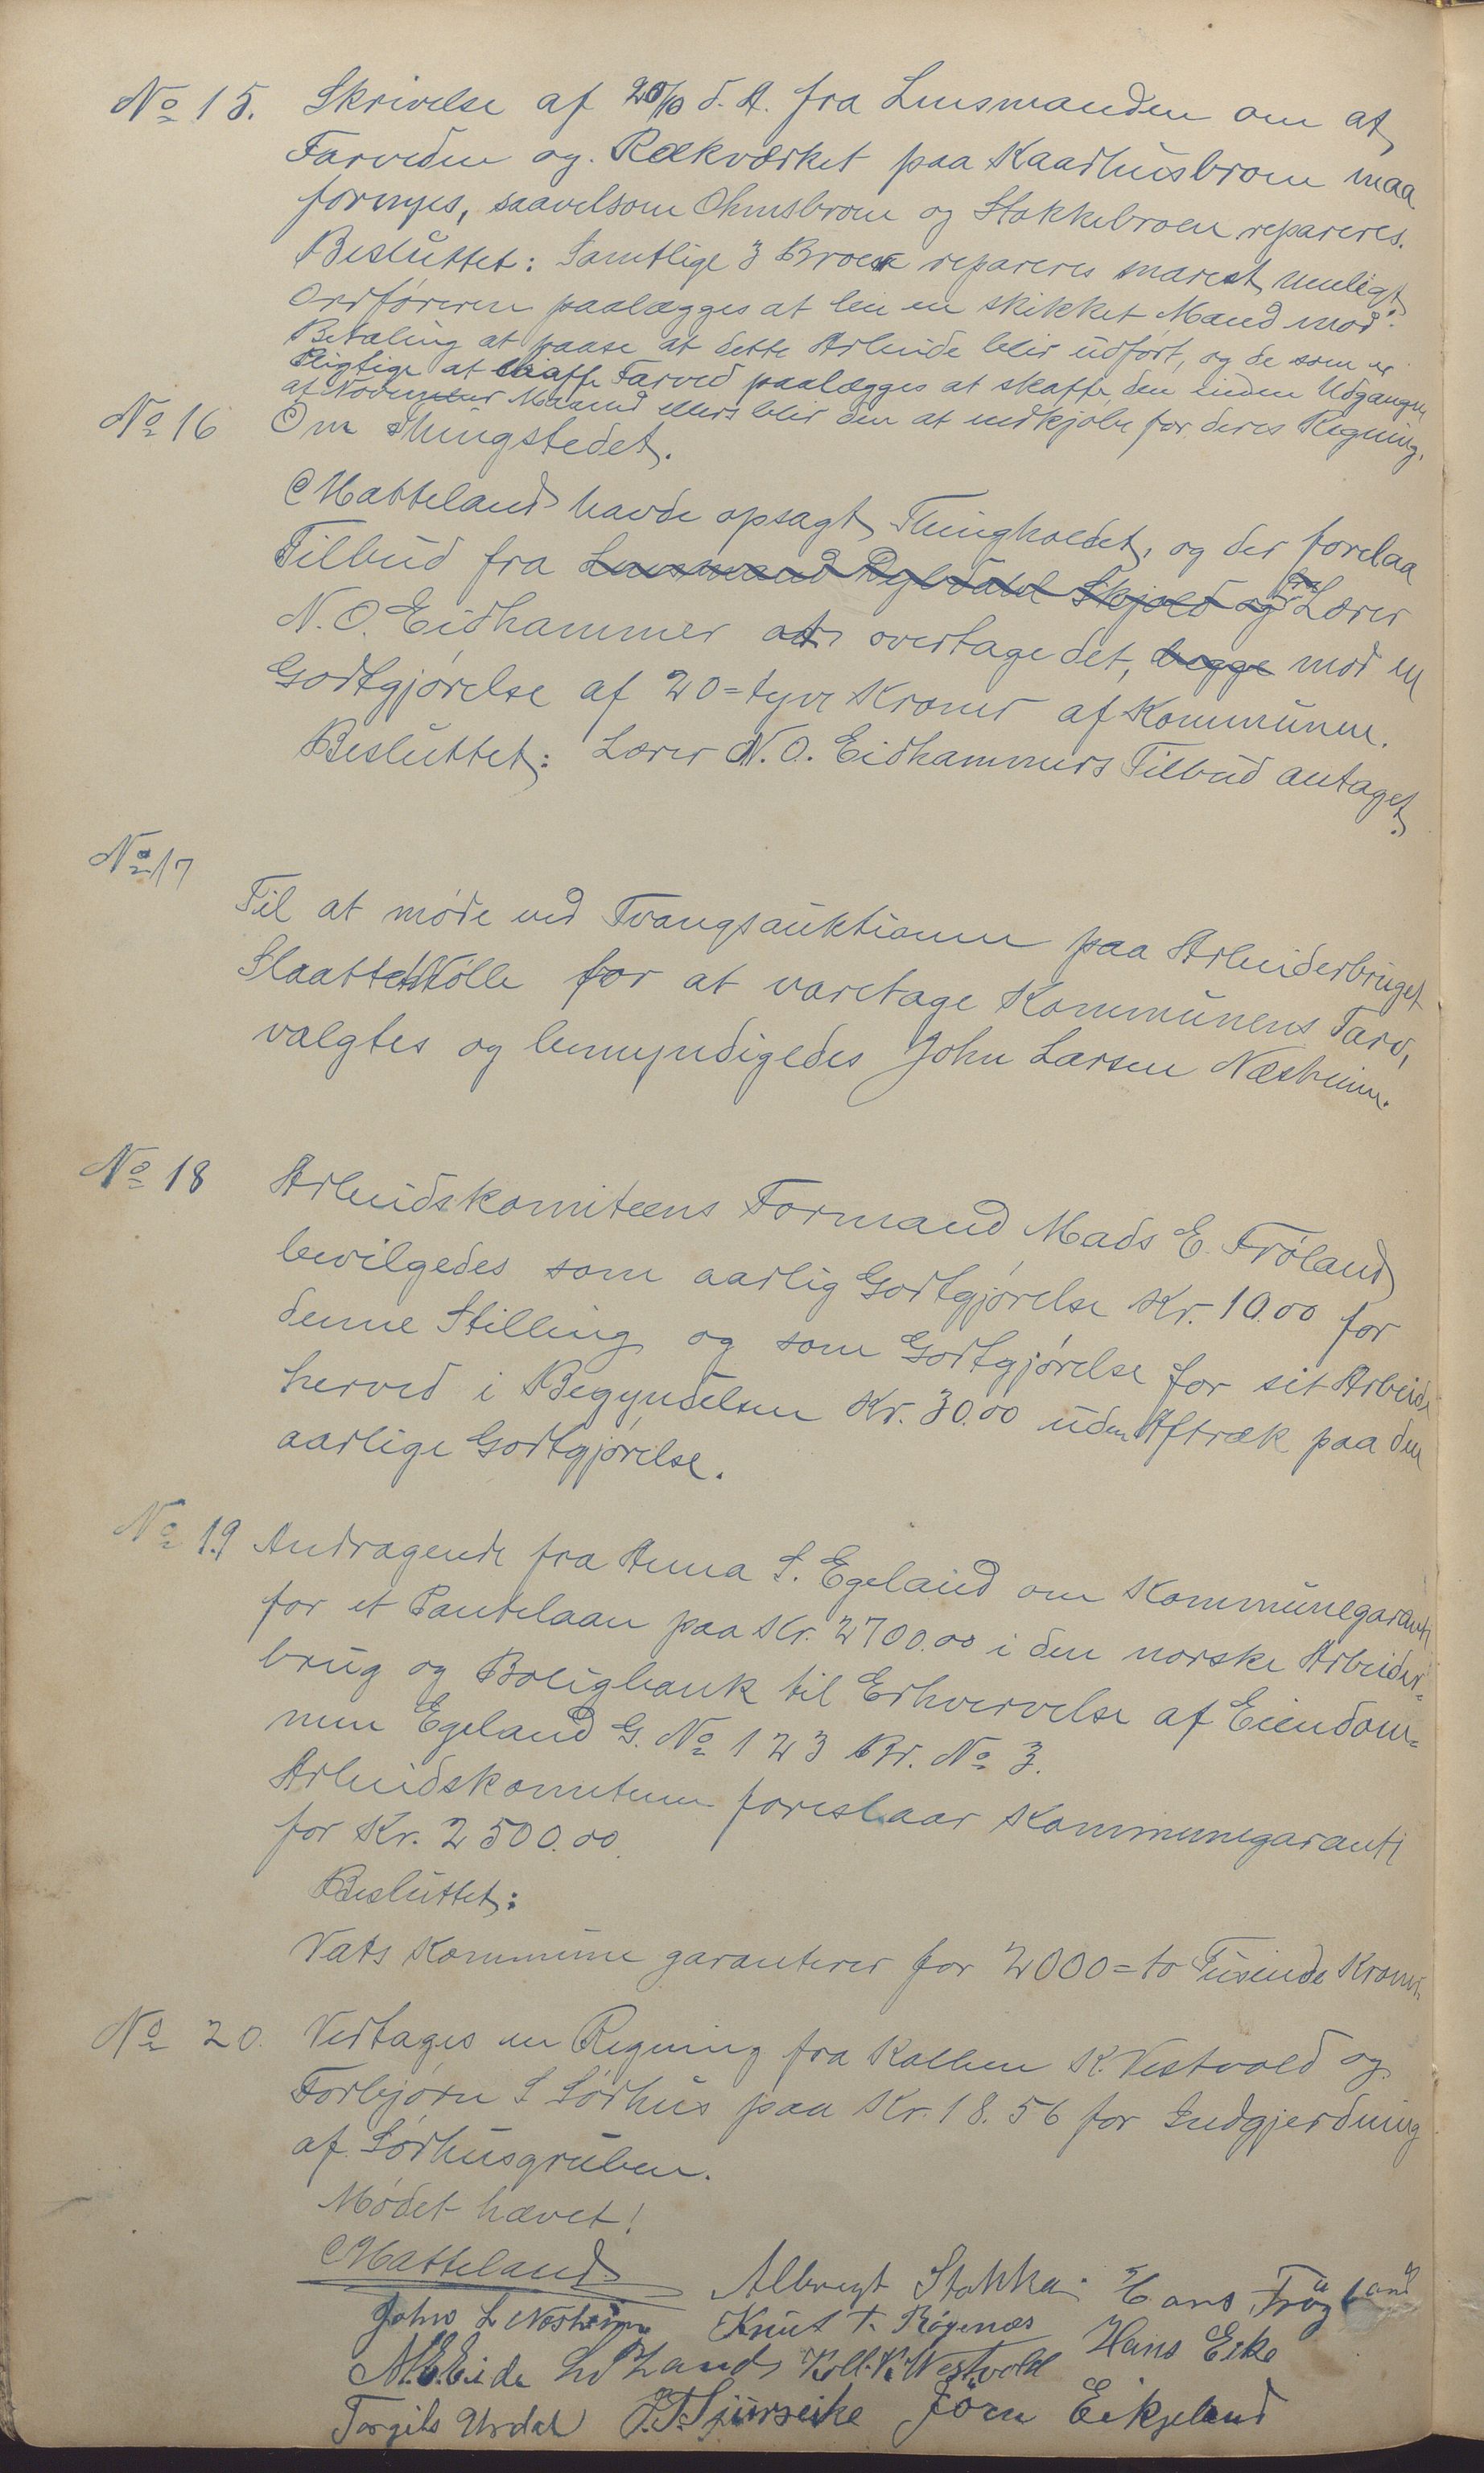 No 15. Skrivelse af 20/10 d. A. fra Lensmanden om at
Farveden og Rækværket paa Kaarhusbroen maa
fornyes, saavelsom Ohmsbroen og Stakkebroen repareres.
Besluttet: Samtlige 3 Broer repareres snarest muligt.
Ordføreren paalægges at leie en skikket Mand mod
Betaling at paase at dette Arbeide blir udført, og de som er
Pligtige at skaffe Farved paalægges at skaffe den inden Udgangen
af November Maaned ellers blir den at indkjøbe for deres Regning.
No 16 Om Thingstedet.
Matteland havde opsagt Thingholdet, og der forelaa
Tilbud fra Lærer
N. O. Eidhammer at overtage det, begge mod en
Godtgjørelse af 20 = tyve Kroner af Kommunen.
Besluttet: Lærer N. O. Eidhammers Tilbud antaget.
No 17
Til at møde ved Tvangsauktionen paa Arbeiderbruget
Slaattes for at varetage Kommunens Tarv,
valgtes og bemyndigedes John Larsen Næsheim.
No 18 Arbeidskomiteens Formand Mads E. Frøland
bevilgedes som aarlig Godtgjørelse Kr. 10.00 for
denne Stilling og som Godtgjørelse for sit Arbeide
herved i Begyndelsen Kr. 30.00 uden Aftræk paa den
aarlige Godtgjørelse.
No 19 Andragende fra Anna S. Egeland om Kommunegaranti
for et Pantelaan paa Kr. 2700.00 i den norske Arbeider=
brug og Boligbank til Erhvervelse af Eiendom=
men Egeland G. No 123 Br. No 3.
Arbeidskomiteen foreslaar Kommunegaranti
for Kr. 2500.00.
Besluttet:
Vats Kommune garanterer for 2000 = to Tusinde Kroner.
No 20. Vedtages en Regning fra Kolben K. Vestvold og
Torbjørn S Sørhus paa Kr. 18.56 for Indgjerdning
af Sørhusgruben.
Mødet hævet!
Matteland Albregt Stakka Hans Frøyland
John L Næsheim Knut T. Røgenæs Hans Eike
M. E. Eide Kolb. K. Westvold
Torgils Urdal Sjurseike Jörn Eikjeland